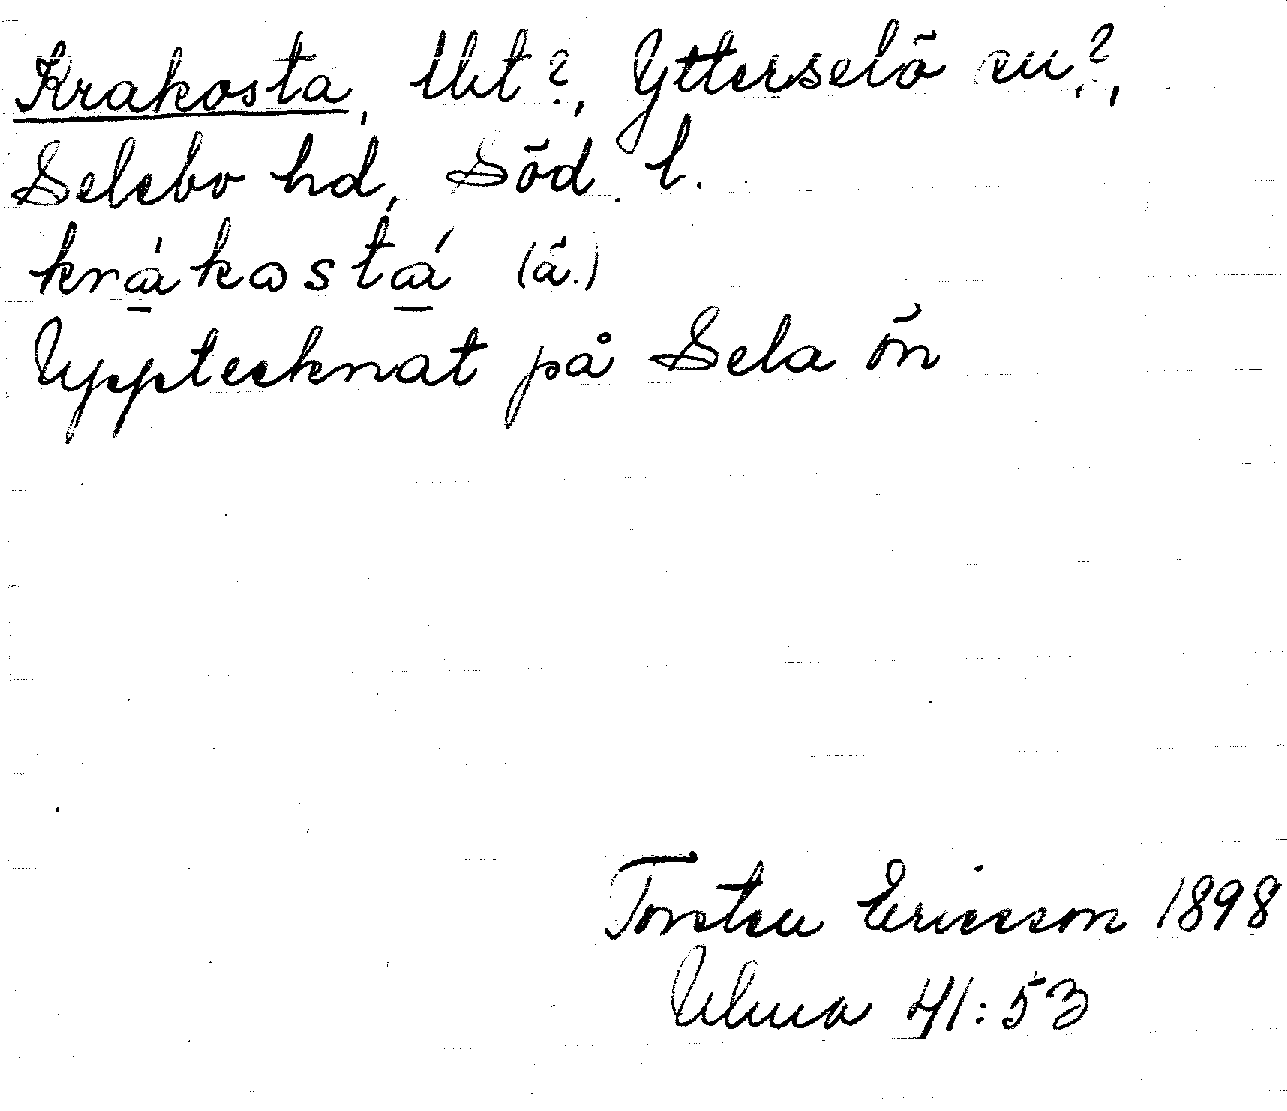 Krakosta, Ukt?, Ytterselö sn?,
Selebo hd, Söd. l.
kràkastá (á.)
Upptecknat på Sela ön
Torsten Ericsson 1898
Ulma 41:53